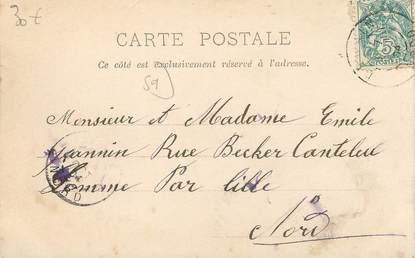 30 €
CARTE POSTALE
Ce côté est exclusivement réservé à l'adresse.
59
Monsieur et Madame Emile
Jeannin Rue Becker Canteleu
Lomme Par lille
Nord
5
POSTES
NORD